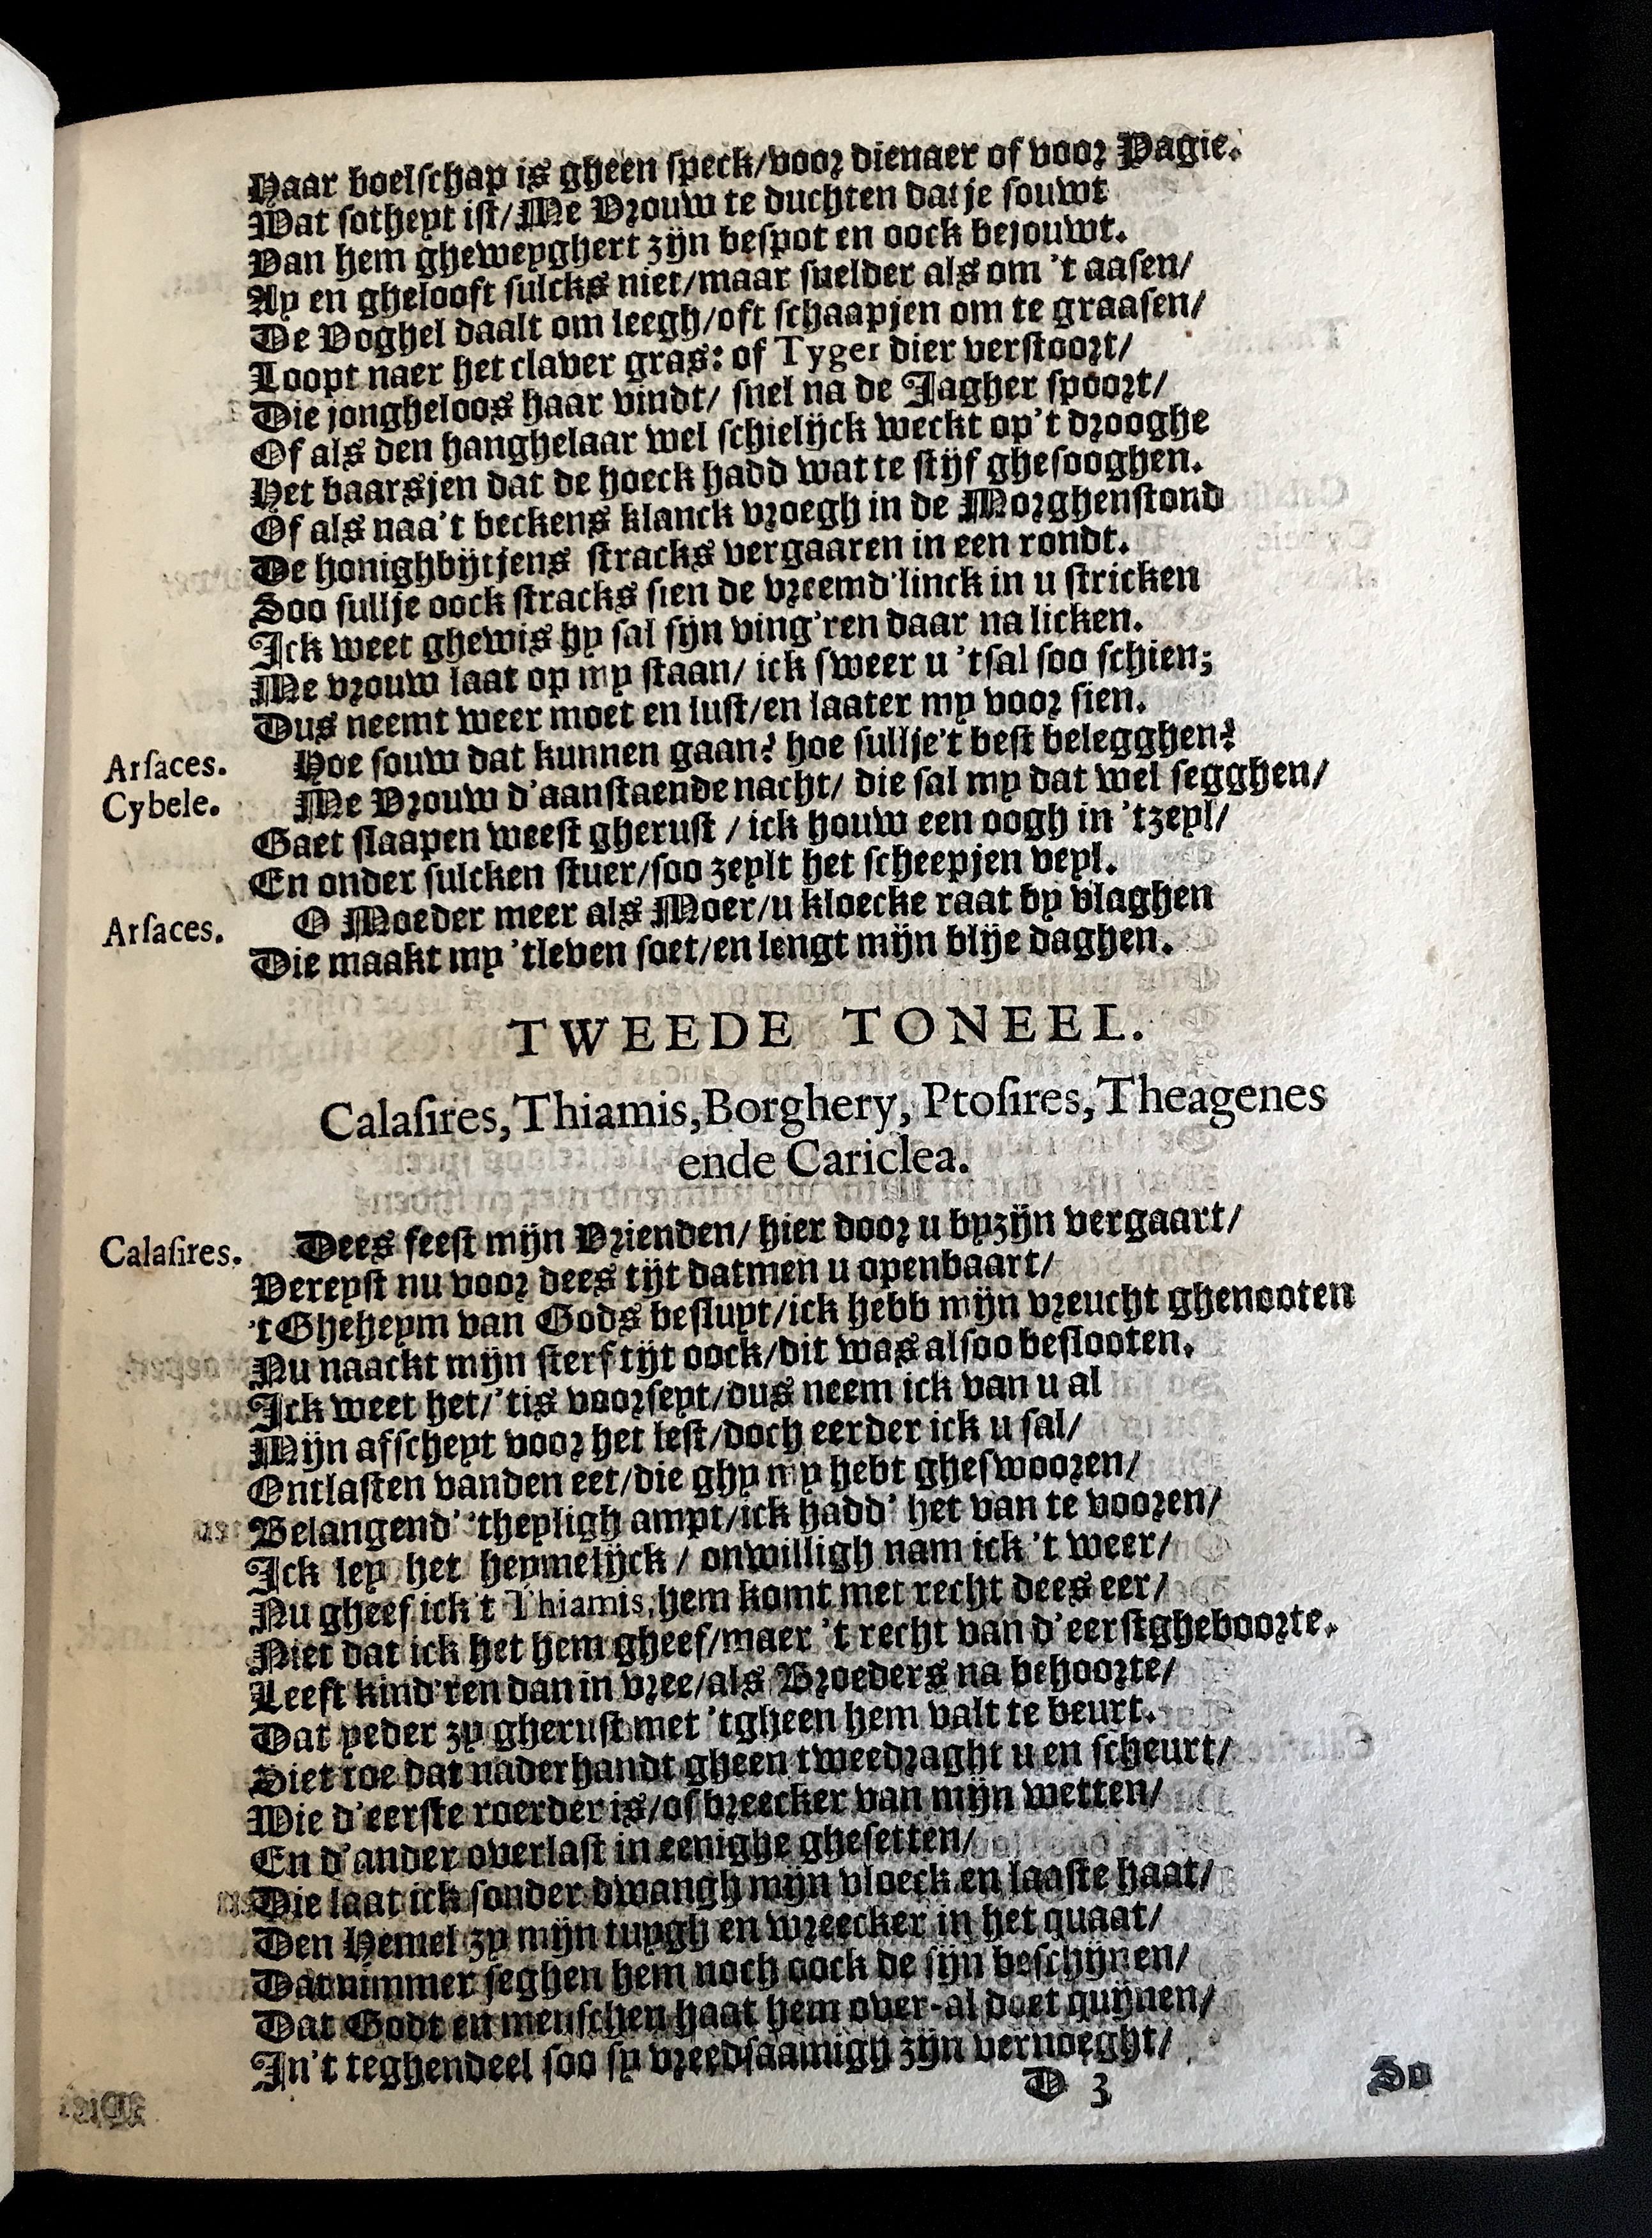 Haar boelschap is gheen speck/voor dienaer of voor Pagie.
Wat sotheyt ist/Me Vrouw te duchten dat je souwt
Van hem gheweyghert zijn bespot en oock bejouwt.
Ay en ghelooft sulcks niet/maar snelder als om 't aasen/
De Voghel daalt om leegh/oft schaapjen om te graasen/
Loopt naer het claver gras: of Tyger dier verstoort/
Die jongheloos haar vindt/ snel na de Jagher spoort/
Of als den hanghelaar wel schielijck weckt op't drooghe
Het baarsjen dat de hoeck hadd wat te stijf ghesooghen.
Of als naa't beckens klanck vroegh in de Morghenstond
De honighbijtjens stracks vergaaren in een rondt.
Soo sullje oock stracks sien de vreemd'linck in u stricken
Ick weet ghewis hy sal sijn ving'ren daar na licken.
Me vrouw laat op my staan/ ick sweer u 'tsal soo schien;
Dus neemt weer moet en lust/en laater my voor sien.
Arsaces. Hoe souw dat kunnen gaan? hoe sullje't best belegghen?
Cybele. Me Vrouw d'aanstaende nacht/ die sal my dat wel segghen/
Gaet slaapen weest gherust / ick houw een oogh in 'tzeyl/
En onder sulcken stuer/soo zeylt het scheepjen veyl.
Arsaces. O Moeder meer als Moer/u kloecke raat by vlaghen
Die maakt my 'tleven soet/en lengt mijn blije daghen.
TWEEDE TONEEL.
Calasires, Thiamis, Borghery, Ptosires, Theagenes
ende Cariclea.
Calasires. Dees feest mijn Vrienden/ hier door u byzijn vergaart/
Vereyst nu voor dees tijt datmen u openbaart/
't Gheheym van Gods besluyt/ick hebb mijn vreucht ghenooten
Nu naackt mijn sterf tijt oock/dit was alsoo beslooten.
Ick weet het/'tis voorseyt/dus neem ick van u al
Mijn afscheyt voor het lest/doch eerder ick u sal/
Ontlasten vanden eet/die ghy my hebt gheswooren/
Belangend' 'theyligh ampt/ick hadd' het van te vooren/
Ick ley het heymelijck / onwilligh nam ick 't weer/
Nu gheef ick't Thiamis, hem komt met recht dees eer/
Niet dat ick het hem gheef/maer 't recht van d'eerstgheboorte.
Leeft kind'ren dan in vree/als Broeders na behoorte/
Dat yeder zy gherust met 'tgheen hem valt te beurt.
Siet toe dat naderhandt gheen tweedraght u en scheurt/
Wie d'eerste roerder is/of breecker van mijn wetten/
En d'ander overlast in eenighe ghesetten/
Die laat ick sonder dwangh mijn vloeck en laaste haat/
Den Hemel zy mijn tuygh en wreecker in het quaat/
Dat nimmer seghen hem noch oock de sijn beschijnen/
Dat Godt en menschen haat hem over-al doet quijnen/
In't teghendeel soo sy vreedsaamigh zijn vernoeght/
D 3 So